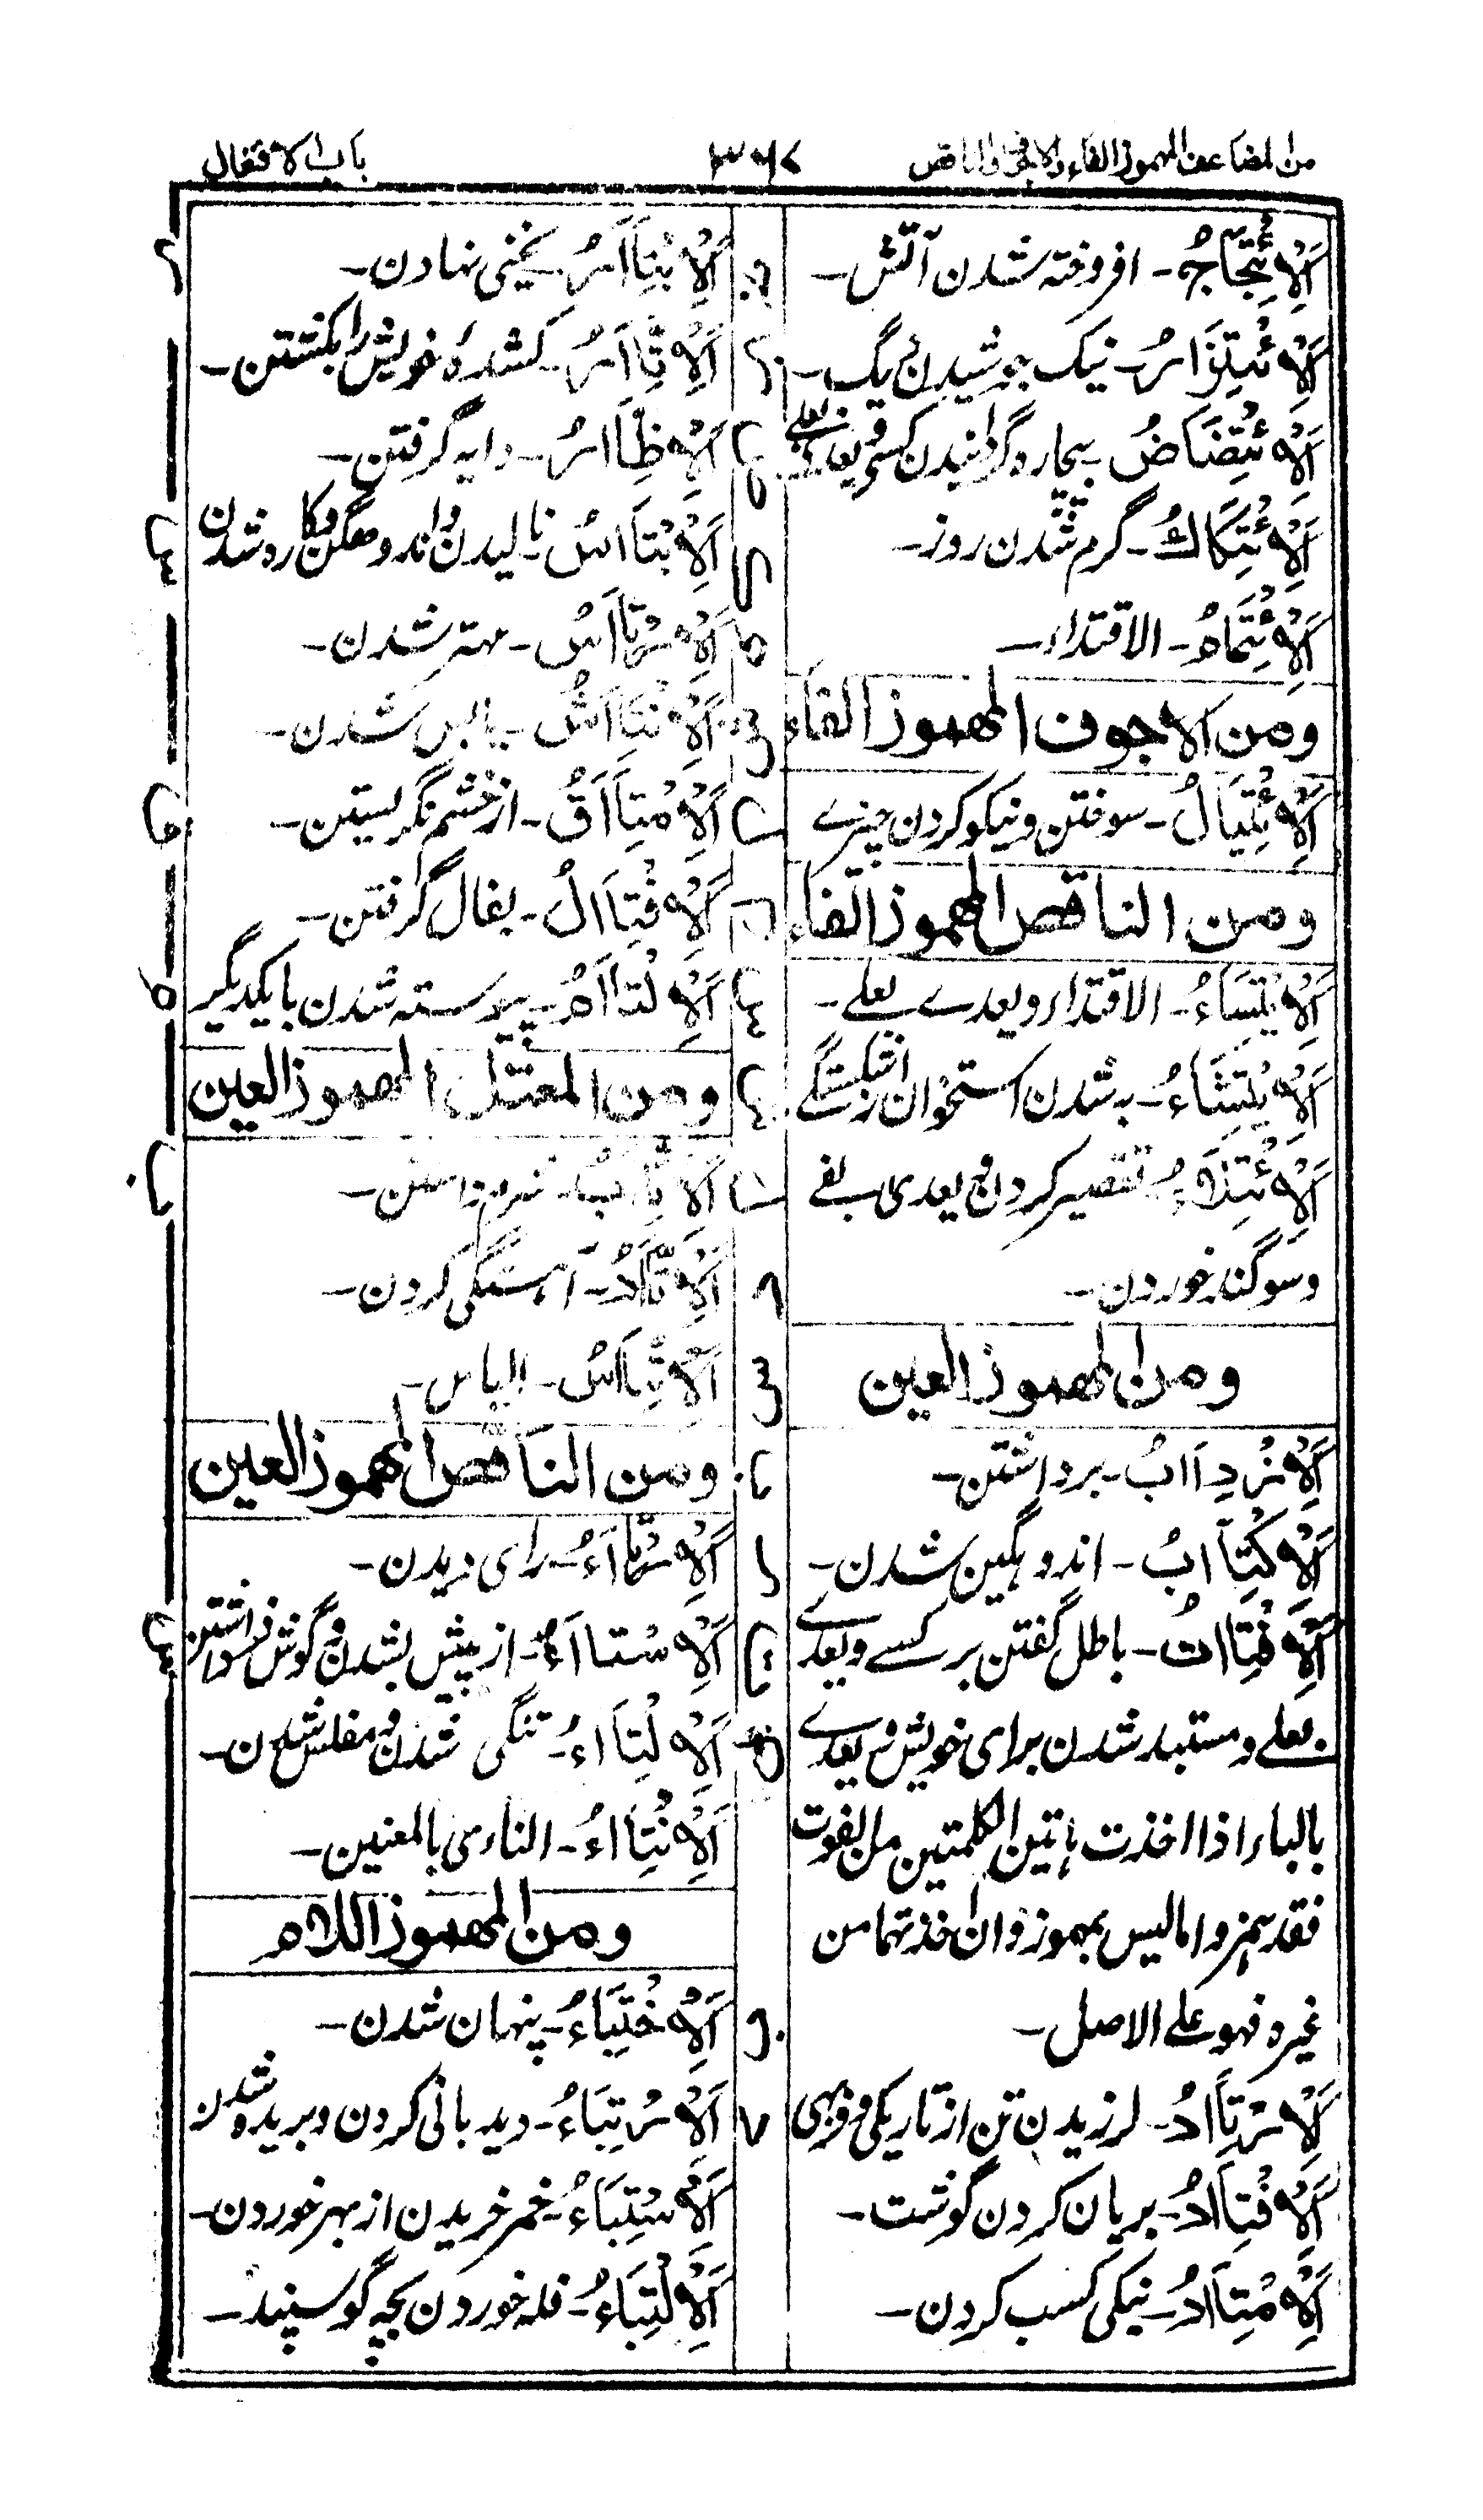 من المضاعف المهموز الفاء والاجوف والناقص
۳۶۷
باب الافتعال
اَلْاِئْتِجَاجُ۔ افروخته شدن آتش۔
اَلْاِئْتِزَازُ۔ نیک جوشیدن دیگ۔
اَلْاِئْتِضَاضُ۔ بیچاره گردانیدن کسی ویعدی بعلی
اَلْاِئْتِكَاكُ۔ گرم شدن روز۔
اَلْاِئْتِمَامُ۔ الاقتداء۔
ومن الاجوف المهموز الفاء
اَلْاِئْتِيَالُ۔ سوختن ونیکو کردن چیزے
ومن الناقص المهموز الفاء
اَلْاِئْتِسَاءُ۔ الاقتداء ویعدے بعلے۔
اَلْاِئْتِشَاءُ۔ به شدن استخوان از شکستگے
اَلْاِئْتِلَاءُ۔ تقصیر کردن ویعدی بفے
وسوگند خوردن۔
ومن المهموز العين
اَلْاِزْدِاَابُ۔ برداشتن۔
اَلْاِكْتِاَابُ۔ اندوهگین شدن۔
اَلْاِفْتِاَاتُ۔ باطل گفتن بر کسے ویعدے
بعلے ومستبد شدن برای خویش ویعدے
بالباء اذا اخذت هاتين الكلمتين من الفوت
فقد همزوا ما ليس بمهموز وان اخذتهما من
غيره فهو على الاصل۔
اَلْاِرْتِاَادُ۔ لرزیدن تن از تاریکی وفربهی
اَلْاِفْتِاَادُ۔ بریان کردن گوشت۔
اَلْاِمْتِاَادُ۔ نیکی کسب کردن۔
اَلْاِبْتِاَارُ۔ یخنی نهادن۔
اَلْاِثِّاَارُ۔ کشندهٔ خویش را بکشتن۔
اَلْاِظِّاَارُ۔ دایه گرفتن۔
اَلْاِبْتِاَاسُ۔ نالیدن واندوهگن وکاره شدن
اَلْاِرْتِاَاسُ۔ مهتر شدن۔
شدن۔
اَلْاِمْتِاَاقُ۔ از خشم نگریستن۔
اَلْاِفْتِاَالُ۔ بفال گرفتن۔
اَلْاِلْتِاَامُ۔ پیوسته شدن با یکدیگر
ومن المعتل المهموز العين
اَلْاِتِّاَابُ۔ شرم داشتن۔
اَلْاِتِّاَادُ۔ آهستگی کردن۔
ومن الناقص المهموز العين
اَلْاِرْتِاَاءُ۔ رای دیدن۔
اَلْاِسْتِاَاءُ۔ از پیش بشدن وگوش فراداشتن
اَلْاِلْتِاَاءُ۔ تنگی شدن ومفلس شدن۔
اَلْاِنْتِاَاءُ۔ بالمعنيين۔
ومن المهموز اللام
اَلْاِخْتِبَاءُ۔ پنهان شدن۔
اَلْاِرْتِبَاءُ۔ دیدبانی کردن وبریده شدن
اَلْاِسْتِبَاءُ۔ خمر خریدن از بهر خوردن۔
اَلْاِلْتِبَاءُ۔ فله خوردن بچه گوسپند۔